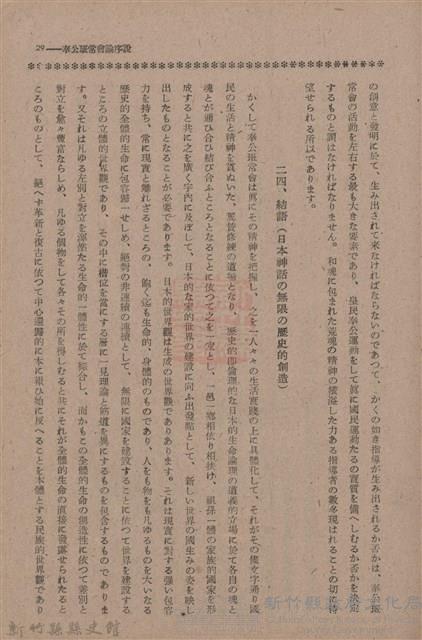 29——奉公班常會論序說
の創意と發明に於て、生み出されて來なければならないのであつて、かくの如き指導が生み出されるか否かは、奉公班
常會の活動を左右する最も大きな要素であり、皇民奉公運動をして眞に國民運動たるの實質を備へしむるか否かを決定
するものと謂はなければなりません。和魂に包まれた荒魂の精神の橫溢した力ある指導者の數多現はれることの切に待
望せられる所以であります。
二四、結語(日本神話の無限の歷史的創造)
かくして奉公班常會は眞にその精神を把握し、之を一人々々の生活實踐の上に具體化して、それがその儘文字通り國
民の生活と精神を貫ぬいた、鍊成修練の道場となり、歷史的卽倫理的な日本的生命論理の道義的立場に於て各自の魂と
魂とが通ひ合ひ結び合ふところとなることに依つて之を一家とし、一邑一鄕相依り相扶け、親孫一體の家族的國家を形
成すると共に之を廣く宇內に及ぼして、日本的な家的世界の建設に向ふ出發點として、新しい世界の國生みの姿を映し
出したものとなることが必要であります。日本的世界觀は生成の世界觀でありあります。それは現實に對する强い包容
力を持ち、常に現實と離れざるところの、飽く迄も生命的、身體的のものであり、人をも物をも凡ゆるものを大いなる
歷史的全體的生命に包容歸一せしめ、絕對の非連續の連續として、無限に國家を建設することに依つて世界を建設する
ところの立體的世界觀であり、その中に樣位を當にする層に一見理論と筋道を異にするものを包含するものでありま
す。又それは凡ゆる差別と對立を渾然たる生命的一體性に於て綜合し、而かもこの全體的生命の創造性に依つて差別と
對立を愈々豐富ならしめ、凡ゆる個物をして各々その所を得しむると共にそれが全體的生命の直接に發露せられたると
ころのものとして、絕へず革新と復古に依つて中心還歸的に本に報ひ始に反へることを本體とする民族的世界觀であり
新竹縣縣史館
新竹縣政府文化局